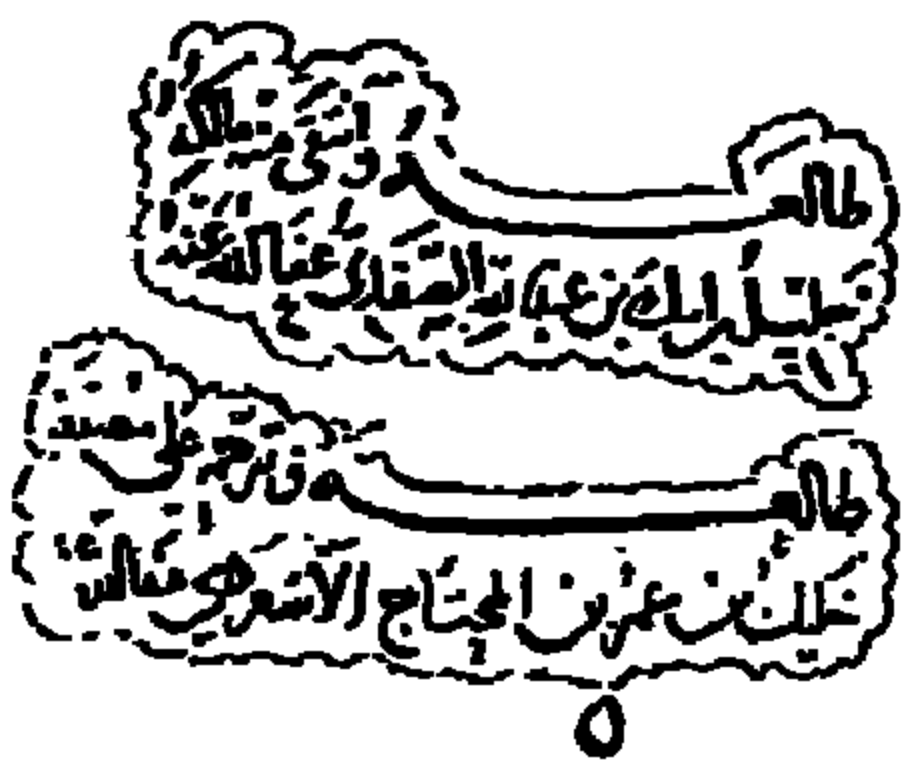 طالعه وانتقى منه مالكه
خليل بن ايبك بن عبد الله الصفدي عفا الله عنه
طالعه وترحم على مصنفه
خليل بن عمر بن المحتاج الأشعري عفا الله عنه